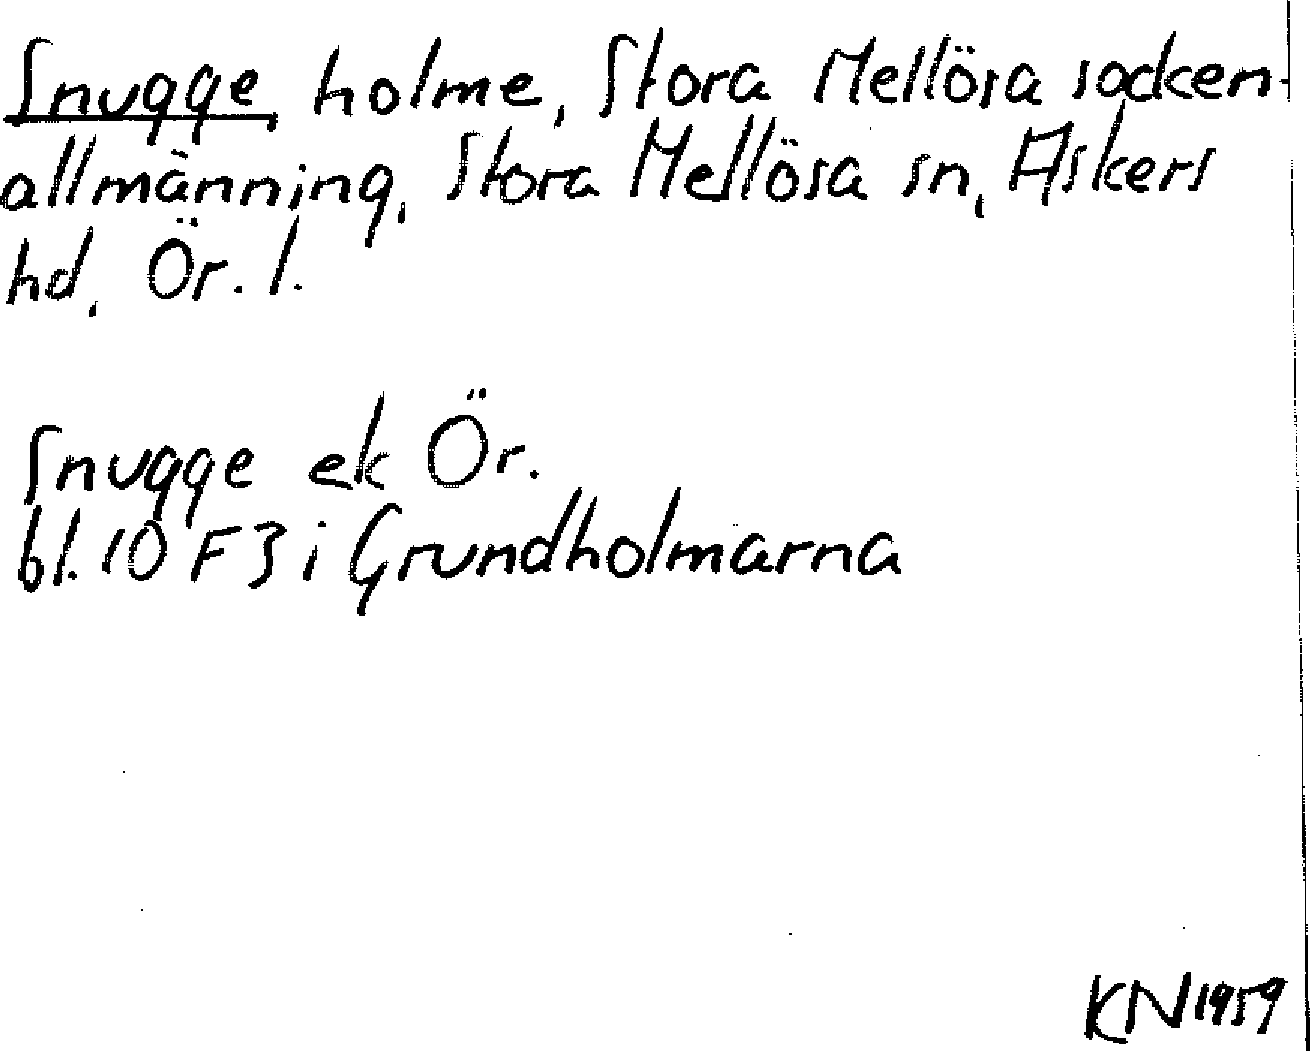 Snugge, holme, Stora Mellösa socken-
allmänning, Stora Mellösa sn, Askers
hd, Ör. l.
Snugge ek Ör.
bl. 10 F3 i Grundholmarna
KN 1959